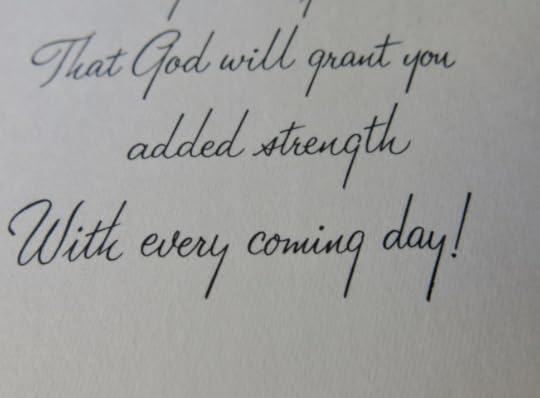 That God will grant you
added strength
With every coming day!